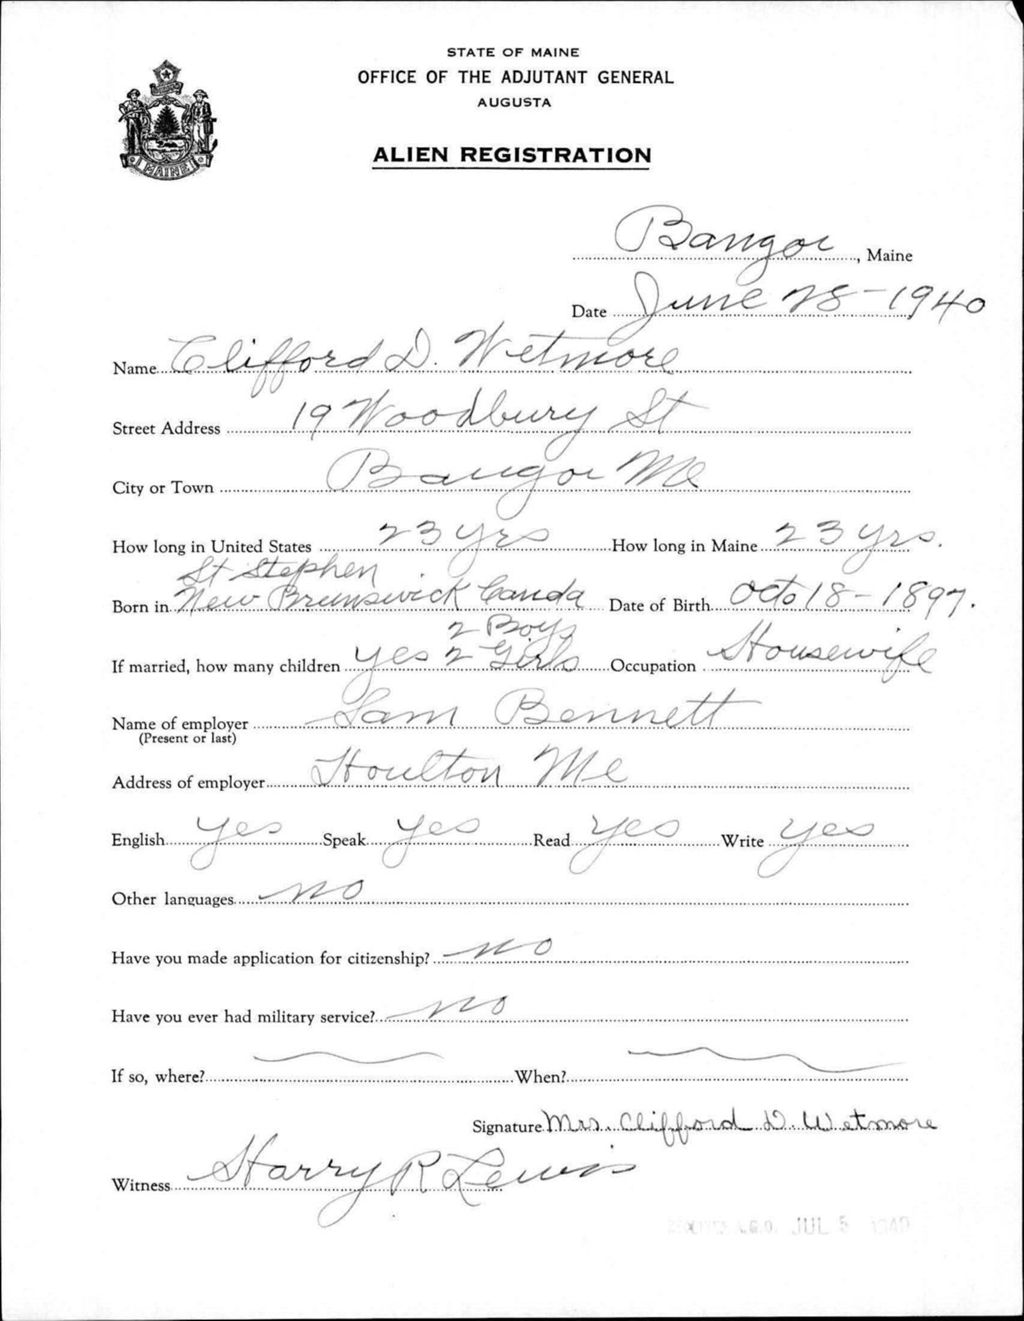 STATE OF MAINE
OFFICE OF THE ADJUTANT GENERAL
AUGUSTA
MAINE
ALIEN REGISTRATION
Bangor, Maine
Date June 28-1940
Name Clifford D. Wetmore
Street Address 19 Woodbury St
City or Town Bangor Me
How long in United States 23 yrs How long in Maine 23 yrs.
St Stephen
Born in New Brunswick Canda Date of Birth Octo 18-1897.
2 Boys
If married, how many children yes 2 Girls Occupation Housewife
Name of employer Sam Bennett
(Present or last)
Address of employer Houlton Me
English yes Speak yes Read yes Write yes
Other languages no
Have you made application for citizenship? no
Have you ever had military service? no
If so, where? When?
Signature Mrs. Clifford D. Wetmore
Witness Harry R Lewis
A.G.O. JUL 5 1940